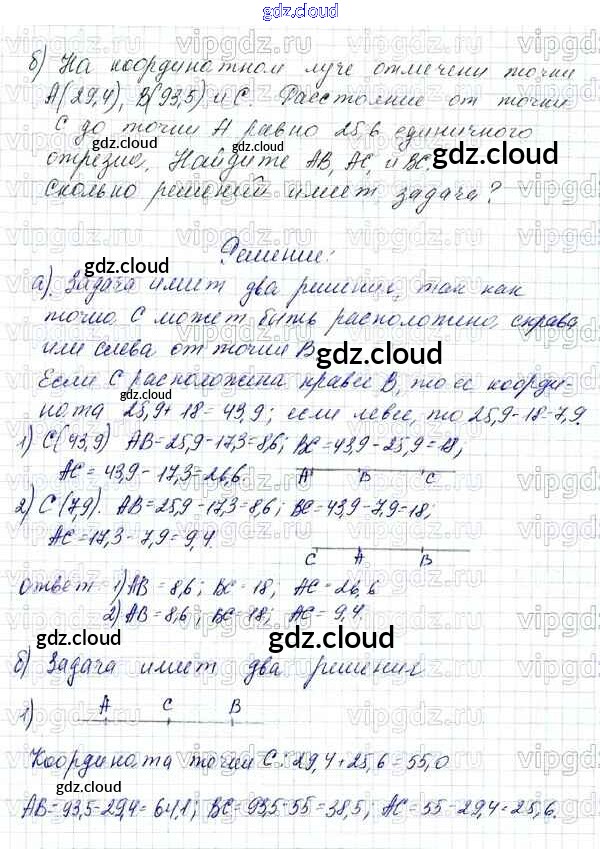 gdz.cloud
б) На координатном луче отмечены точки
А(29,4), В(93,5) и С. Расстояние от точки
С до точки А равно 25,6 единичного
отрезка. Найдите АВ, АС, и ВС.
Сколько решений имеет задача?
Решение:
а). Задача имеет два решения, так как
точка С может быть расположена, справа
или слева от точки В.
Если С расположена правее В, то ее коорди-
ната 25,9+18=43,9; если левее, то 25,9-18=7,9.
1) С(43,9) АВ=25,9-17,3=8,6; ВС=43,9-25,9=18;
АС=43,9-17,3=26,6.
А В С
2) С(7,9). АВ=25,9-17,3=8,6; ВС=43,9-7,9=18;
АС=17,3-7,9=9,4.
С А В
ответ 1) АВ=8,6; ВС=18; АС=26,6
2) АВ=8,6; ВС=18; АС=9,4.
б) Задача имеет два решения
1) А С В
Координата точки С: 29,4+25,6=55,0
АВ=93,5-29,4=64,1; ВС=93,5-55=38,5; АС=55-29,4=25,6.